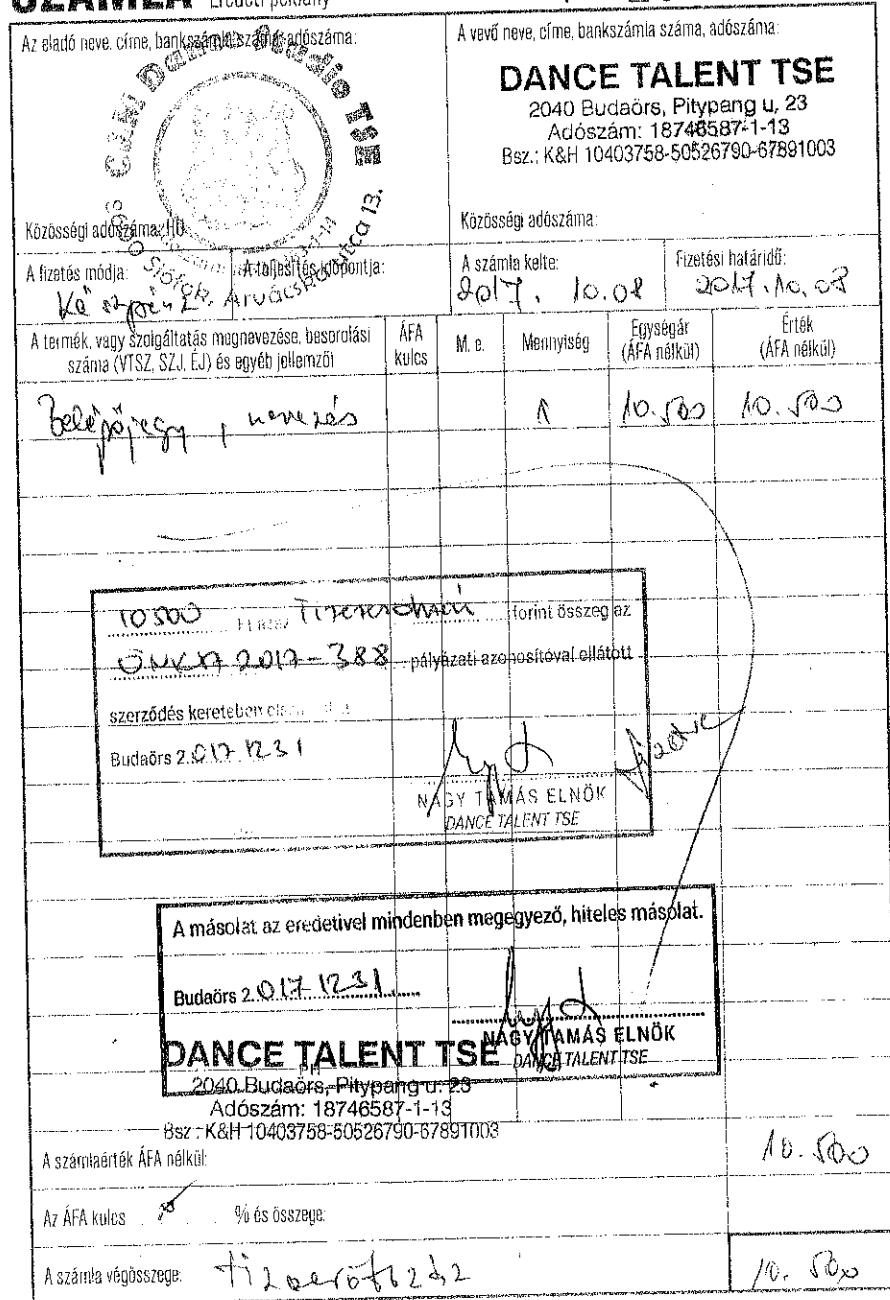 SZÁMLA Eredeti példány
Az eladó neve, címe, bankszámla száma, adószáma:
Dance Studio TSE
8600 Siófok, Arvácska utca 13.
Közösségi adószáma: HU
A vevő neve, címe, bankszámla száma, adószáma:
DANCE TALENT TSE
2040 Budaörs, Pitypang u, 23
Adószám: 18746587-1-13
Bsz.: K&H 10403758-50526790-67891003
Közösségi adószáma:
A fizetés módja:
Készpénz
A teljesítés időpontja:
A számla kelte:
2017. 10.08
Fizetési határidő:
2017.10.08
A termék, vagy szolgáltatás megnevezése, besorolási száma (VTSZ, SZJ, ÉJ) és egyéb jellemzői
ÁFA kulcs
M. e.
Mennyiség
Egységár (ÁFA nélkül)
Érték (ÁFA nélkül)
belépőjegy, nevezés 1 10.500 10.500
10500 forint összeg az
ÖNKA 2017-388 pályázati azonosítóval ellátott
szerződés keretében
Budaörs 2.017 12 31
NAGY TAMÁS ELNÖK
DANCE TALENT TSE
A másolat az eredetivel mindenben megegyező, hiteles másolat.
Budaörs 2.017 12 31
NAGY TAMÁS ELNÖK
DANCE TALENT TSE
DANCE TALENT TSE
2040 Budaörs, Pitypang u. 23
Adószám: 18746587-1-13
Bsz.: K&H 10403758-50526790-67891003
A számlaérték ÁFA nélkül: 10.500
Az ÁFA kulcs % és összege:
A számla végösszege: tizezerötszáz 10.500